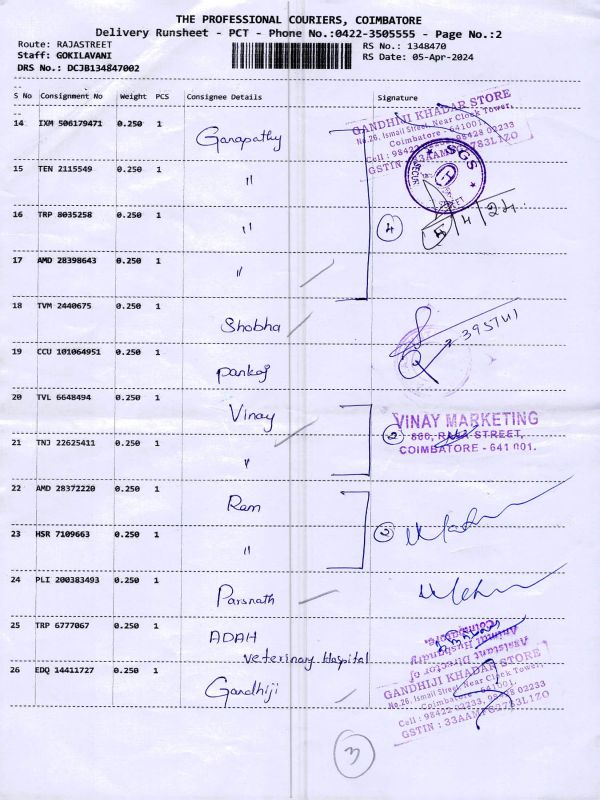 THE PROFESSIONAL COURIERS, COIMBATORE
Delivery Runsheet - PCT - Phone No.:0422-3505555 - Page No.:2
Route: RAJASTREET
RS No.: 1348470
Staff: GOKILAVANI
RS Date: 05-Apr-2024
DRS No.: DCJB134847002
S No Consignment No Weight PCS Consignee Details Signature
GANDHIJI KHADAR STORE
No.26, Ismail Street, Near Clock Tower,
Coimbatore - 641001.
Cell : 98422 02233, 98428 02233
14 IXM 506179471 0.250 1 Ganapathy
SGS
15 TEN 2115549 0.250 1 "
16 TRP 8035258 0.250 1 "
4
5/4/24
17 AMD 28398643 0.250 1 "
18 TVM 2440675 0.250 1 Shobha
395741
19 CCU 101064951 0.250 1 pankaj
20 TVL 6648494 0.250 1 Vinay
2
VINAY MARKETING
STREET,
COIMBATORE - 641 001.
21 TNJ 22625411 0.250 1 "
22 AMD 28372220 0.250 1 Ram
2
23 HSR 7109663 0.250 1 "
24 PLI 200383493 0.250 1 Parsnath
25 TRP 6777067 0.250 1 ADAH
veterinary Hospital
Assistant Director of
Animal Husbandry
Coimbatore.
26 EDQ 14411727 0.250 1 Gandhiji
GANDHIJI KHADAR STORE
No.26, Ismail Street, Near Clock Tower,
Coimbatore - 641001.
Cell : 98422 02233, 98428 02233
3